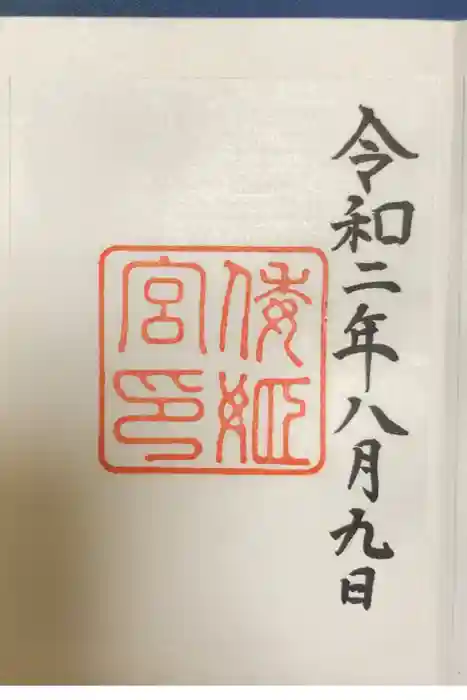 令和二年八月九日
倭姫
宮印